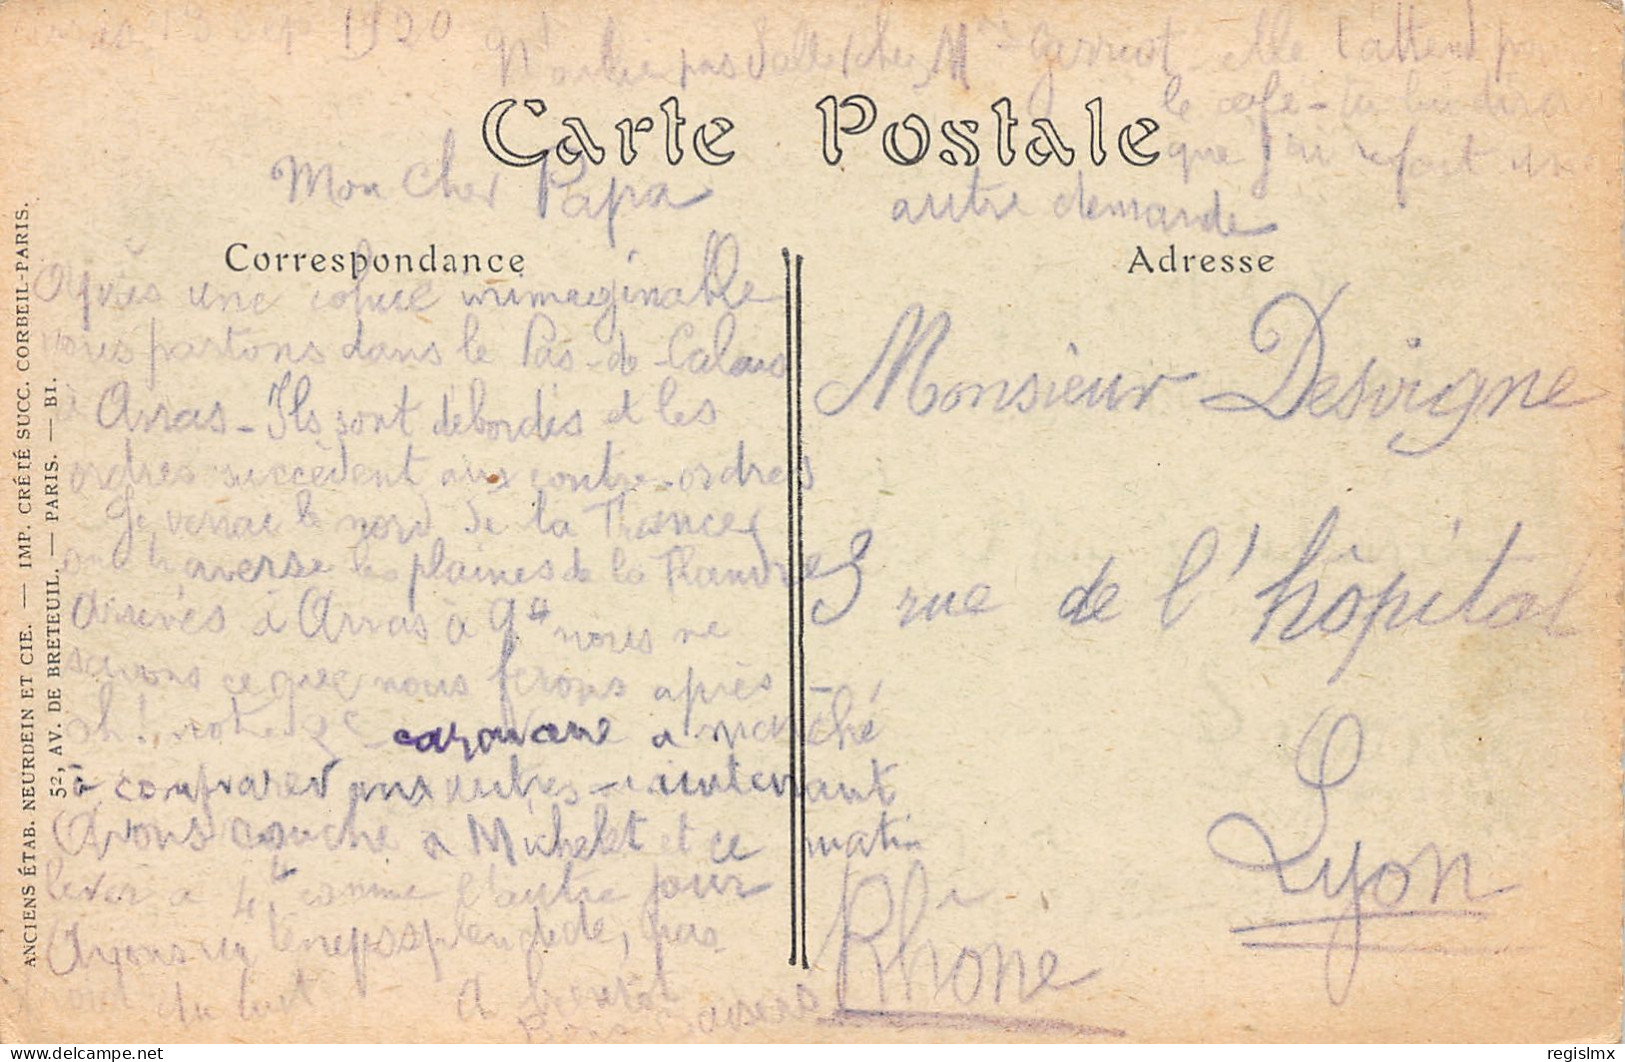 1920
N'oublie pas d'aller chez Mme elle t'attend pour
le café - tu lui diras
que j'ai refait une
autre demande
Carte Postale
Mon cher Papa
Correspondance
Après une cohue inimaginable
nous partons dans le Pas-de-Calais
à Arras - Ils sont débordés et les
ordres succèdent aux contre-ordres
Je verrai le nord de la France
on traverse les plaines de la Flandre
Arrivés à Arras à 9h nous ne
savons ce que nous ferons après -
oh! notre caravane a marché
à comparer aux autres - maintenant
Avons couché à Michelet et ce matin
lever à 4h comme l'autre jour
Avons un temps splendide, pas
froid du tout A bientôt
Bons baisers
Adresse
Monsieur Desvigne
3 rue de l'hôpital
Lyon
Rhône
ANCIENS ÉTAB. NEURDEIN ET CIE. — IMP. CRÉTÉ SUCC. CORBEIL-PARIS.
52, AV. DE BRETEUIL. — PARIS. — BI.
regislmx